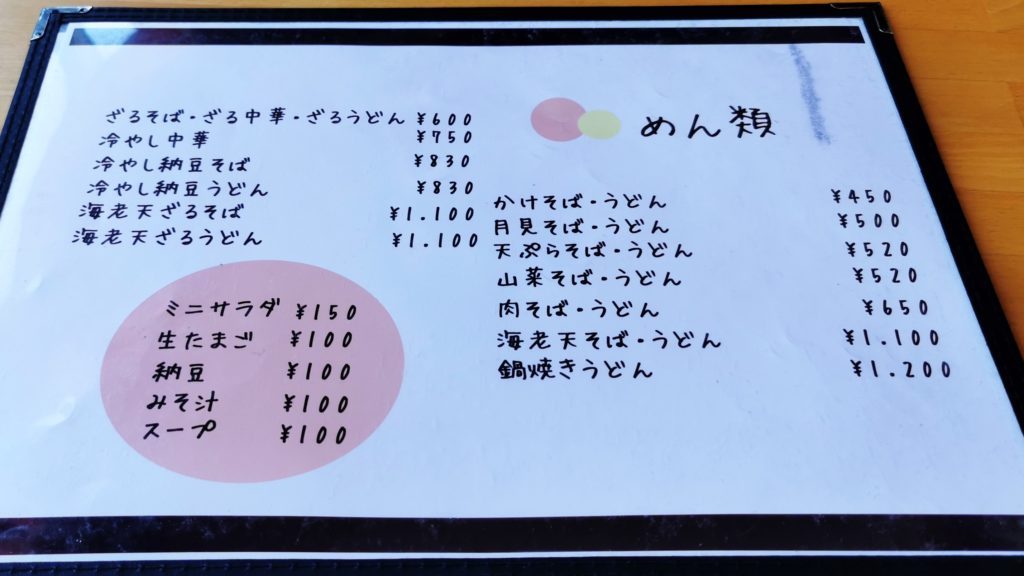 めん類
ざるそば・ざる中華・ざるうどん ¥600
冷やし中華 ¥750
冷やし納豆そば ¥830
冷やし納豆うどん ¥830
海老天ざるそば ¥1.100
海老天ざるうどん ¥1.100
ミニサラダ ¥150
生たまご ¥100
納豆 ¥100
みそ汁 ¥100
スープ ¥100
かけそば・うどん ¥450
月見そば・うどん ¥500
天ぷらそば・うどん ¥520
山菜そば・うどん ¥520
肉そば・うどん ¥650
海老天そば・うどん ¥1.100
鍋焼きうどん ¥1.200